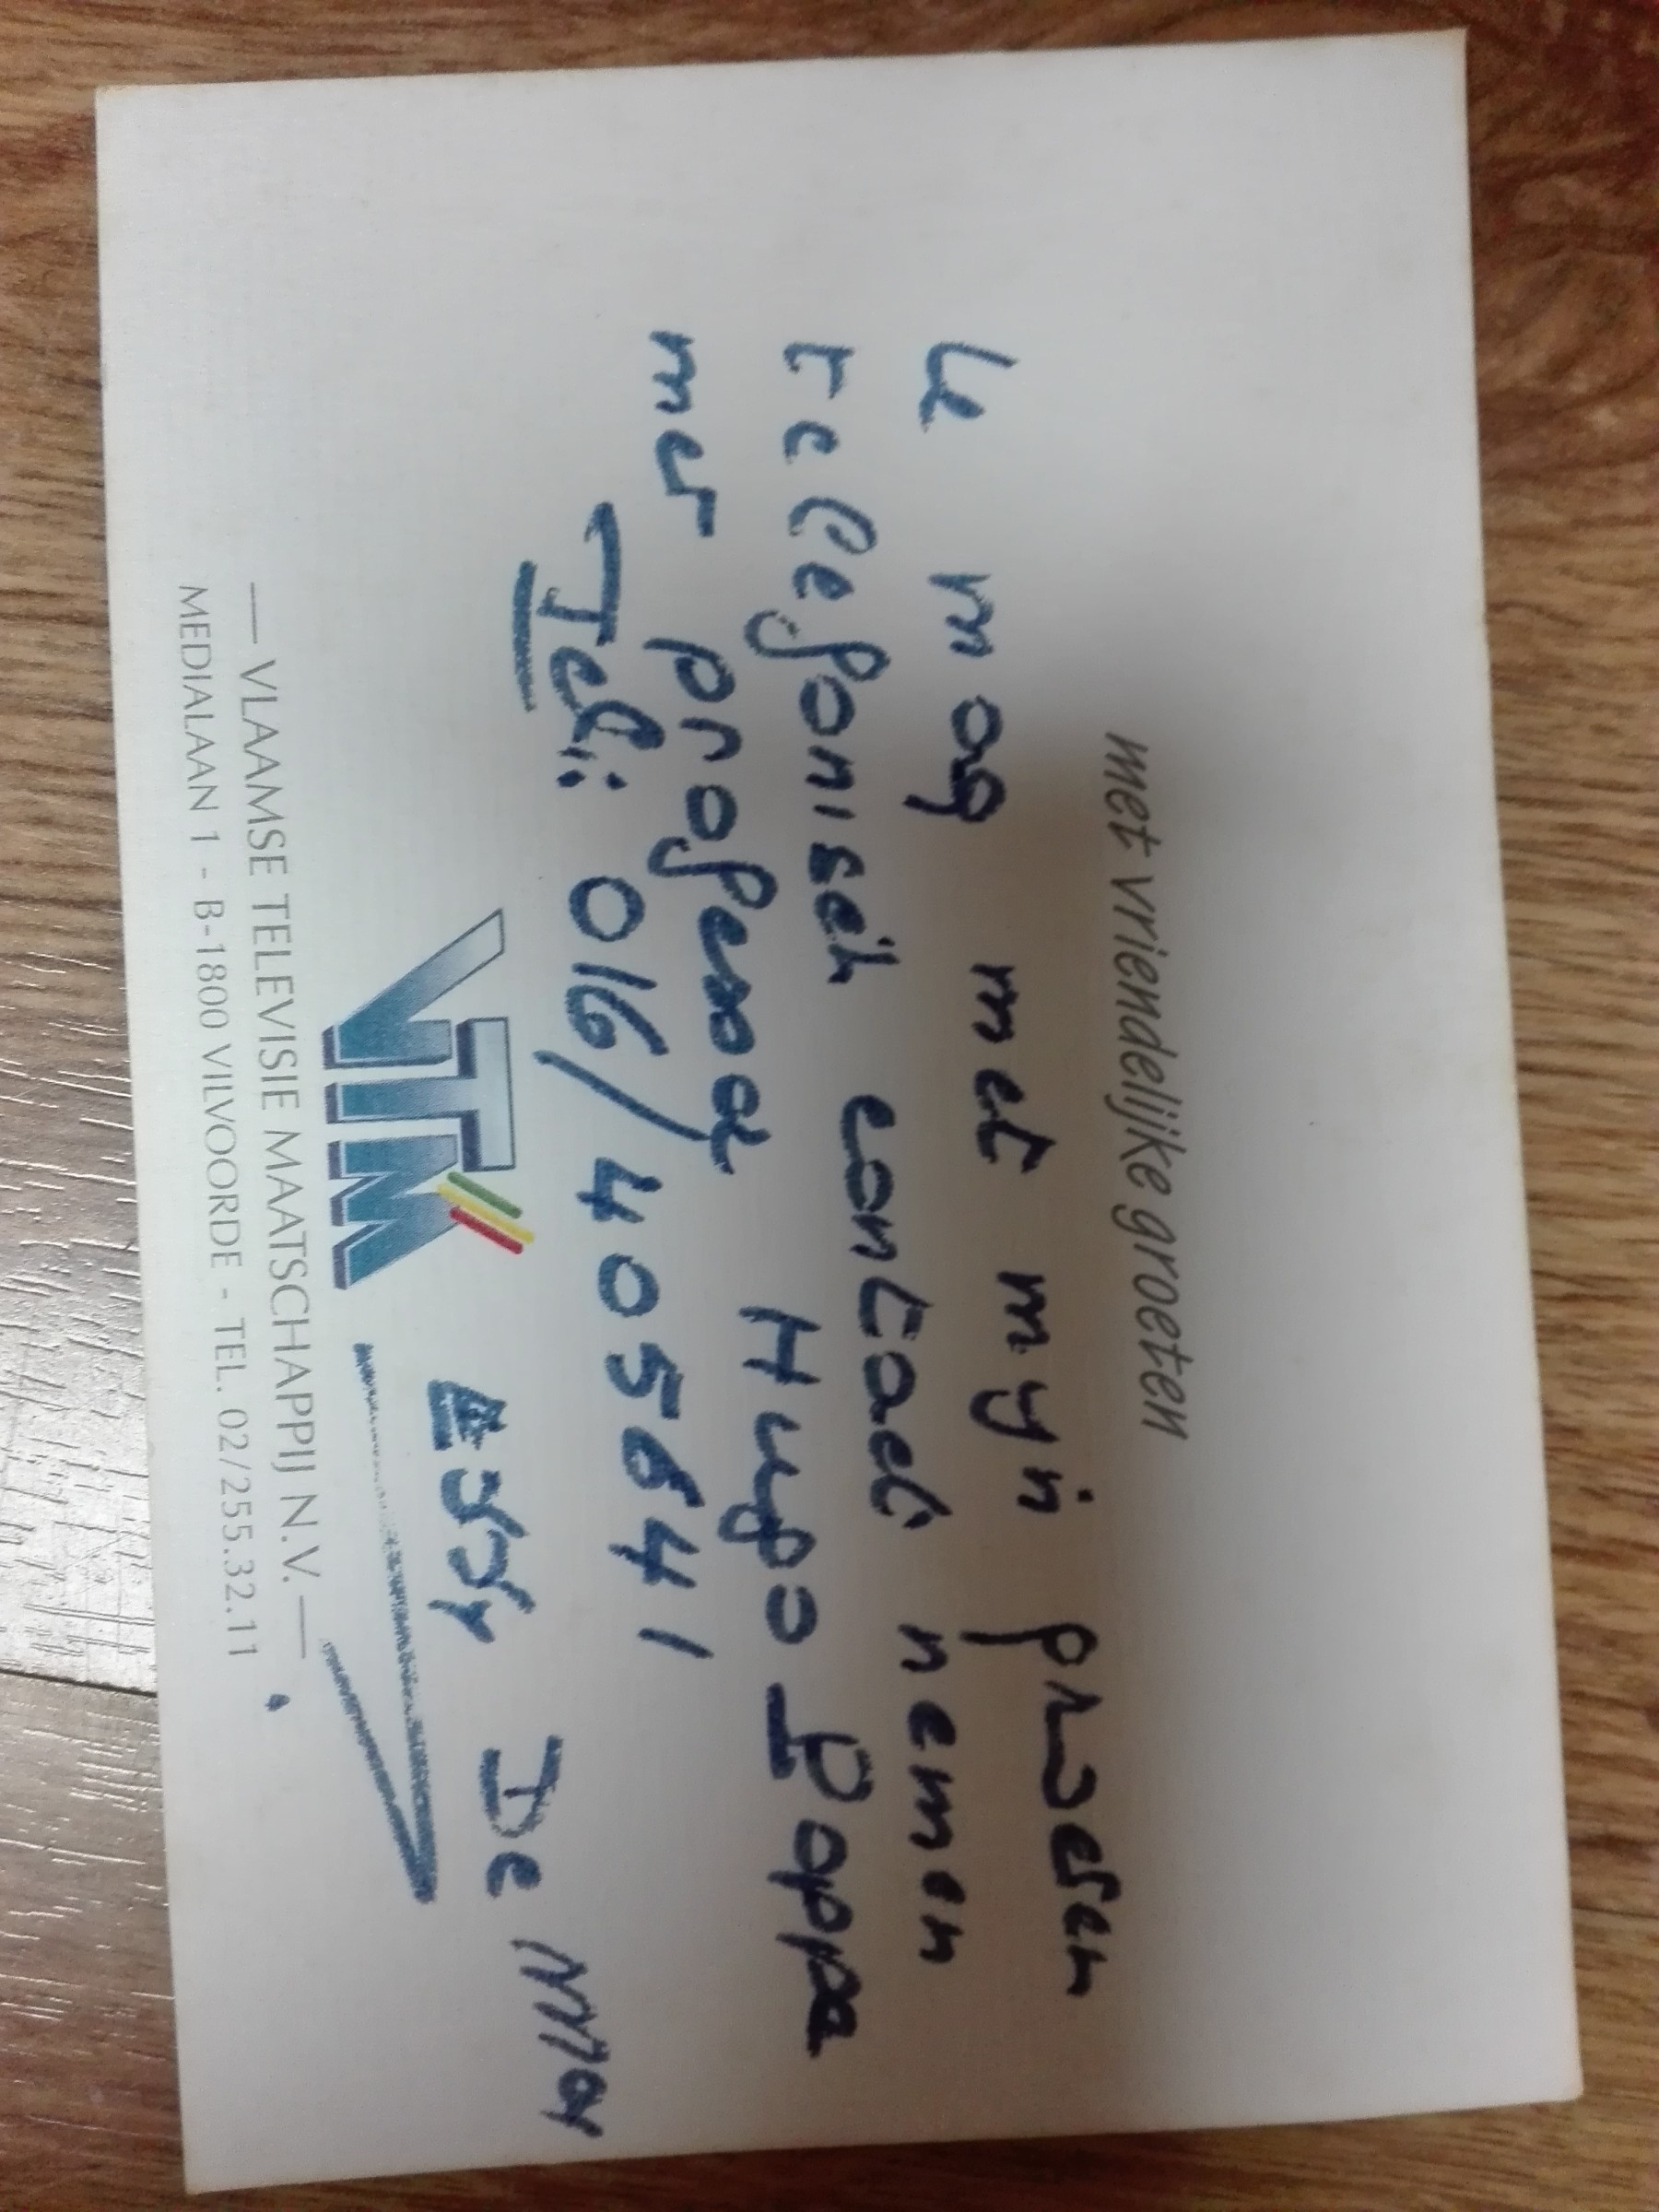 met vriendelijke groeten
U mag met myn
telefonisch contact nemen
met professor Hugo Poppe
Tel: 016/405641
VTM
Essy De Moy
— VLAAMSE TELEVISIE MAATSCHAPPIJ N.V. —
MEDIALAAN 1 - B-1800 VILVOORDE - TEL. 02/255.32.11